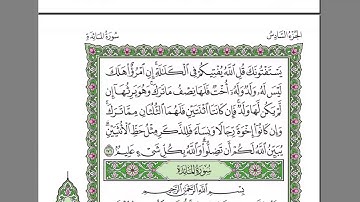 سورة المائدة
الجزء السادس
يَسْتَفْتُونَكَ قُلِ اللَّهُ يُفْتِيكُمْ فِي الْكَلَالَةِ إِنِ امْرُؤٌا هَلَكَ
لَيْسَ لَهُ وَلَدٌ وَلَهُ أُخْتٌ فَلَهَا نِصْفُ مَا تَرَكَ وَهُوَ يَرِثُهَا إِن
لَّمْ يَكُن لَّهَا وَلَدٌ فَإِن كَانَتَا اثْنَتَيْنِ فَلَهُمَا الثُّلُثَانِ مِمَّا تَرَكَ
وَإِن كَانُوا إِخْوَةً رِّجَالًا وَنِسَاءً فَلِلذَّكَرِ مِثْلُ حَظِّ الْأُنثَيَيْنِ
يُبَيِّنُ اللَّهُ لَكُمْ أَن تَضِلُّوا وَاللَّهُ بِكُلِّ شَيْءٍ عَلِيمٌ
سُورَةُ الْمَائِدَةِ
بِسْمِ اللَّهِ الرَّحْمَٰنِ الرَّحِيمِ